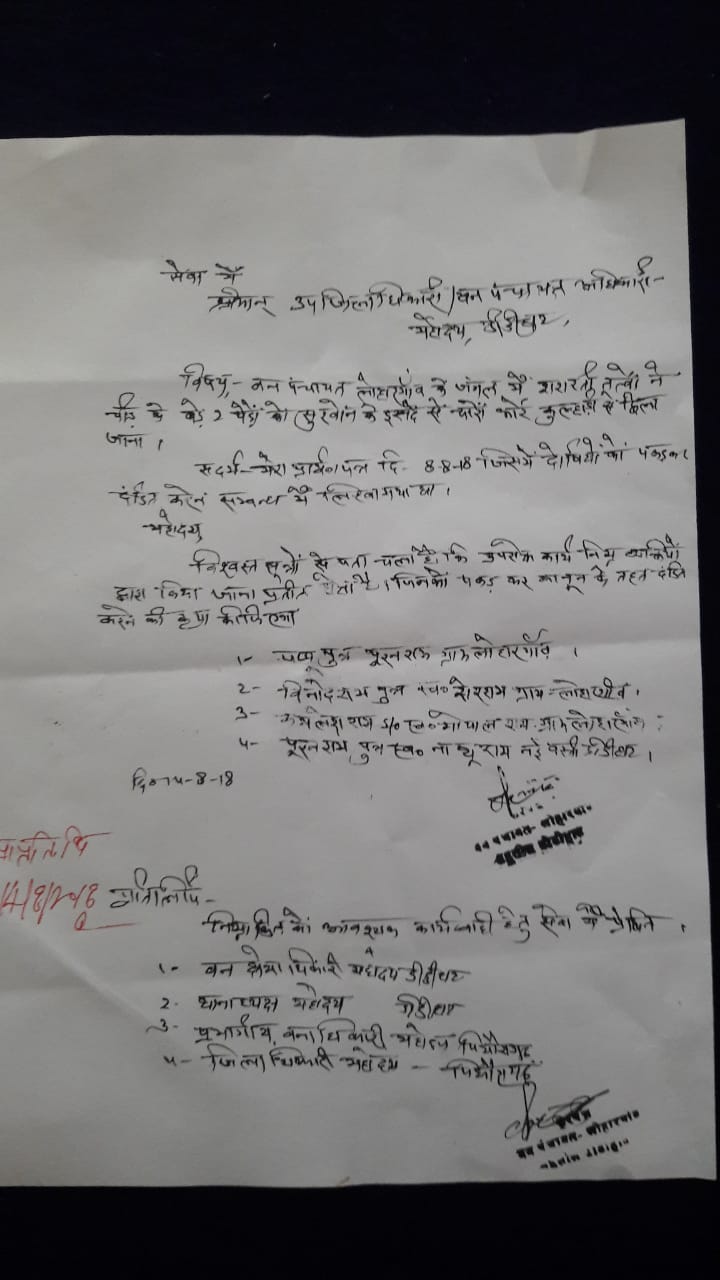 सेवा में
श्रीमान् उपजिलाधिकारी/वन पंचायत अधिकारी-
महोदय, डीडीहाट,
विषय,- वन पंचायत लोहारगाँव के जंगल में शरारती तत्वों ने
चीड़ के बड़े 2 पेड़ों को सुखाने के इरादे से चारों ओर कुल्हाड़ी से छिला
जाना।
संदर्भ- मेरा प्रार्थना पत्र दि- 8-8-18 जिसमें दोषियों को पकड़कर
दंडित करने सम्बन्ध में लिखा गया था।
महोदय
विश्वस्त सूत्रों से पता चला है, कि उपरोक्त कार्य निम्न व्यक्तियों
द्वारा किया जाना प्रतीत होता है। जिनको पकड़ कर कानून के तहत दंडित
करने की कृपा कीजिएगा
1- पप्पू पुत्र पूरन राम ग्राम लोहारगाँव।
2- विनोद राम पुत्र स्व० शेर राम ग्राम- लोहारगाँव।
3- कमलेश राम S/o स्व० गोपाल राम ग्राम लोहारगाँव
4- पूरन राम, पुत्र स्व० राम नई बस्ती डीडीहाट।
दि० 14-8-18
वन पंचायत- लोहारगांव
प्रतिलिपि-
निम्नांकित को आवश्यक कार्यवाही हेतु सेवा में प्रेषित।
1- वन क्षेत्राधिकारी महोदय डीडीहाट
2- थानाध्यक्ष महोदय डीडीहाट
3- प्रभागीय, वनाधिकारी महोदय पिथौरागढ़
4- जिलाधिकारी महोदय - पिथौरागढ़
सरपंच
वन पंचायत- लोहारगांव